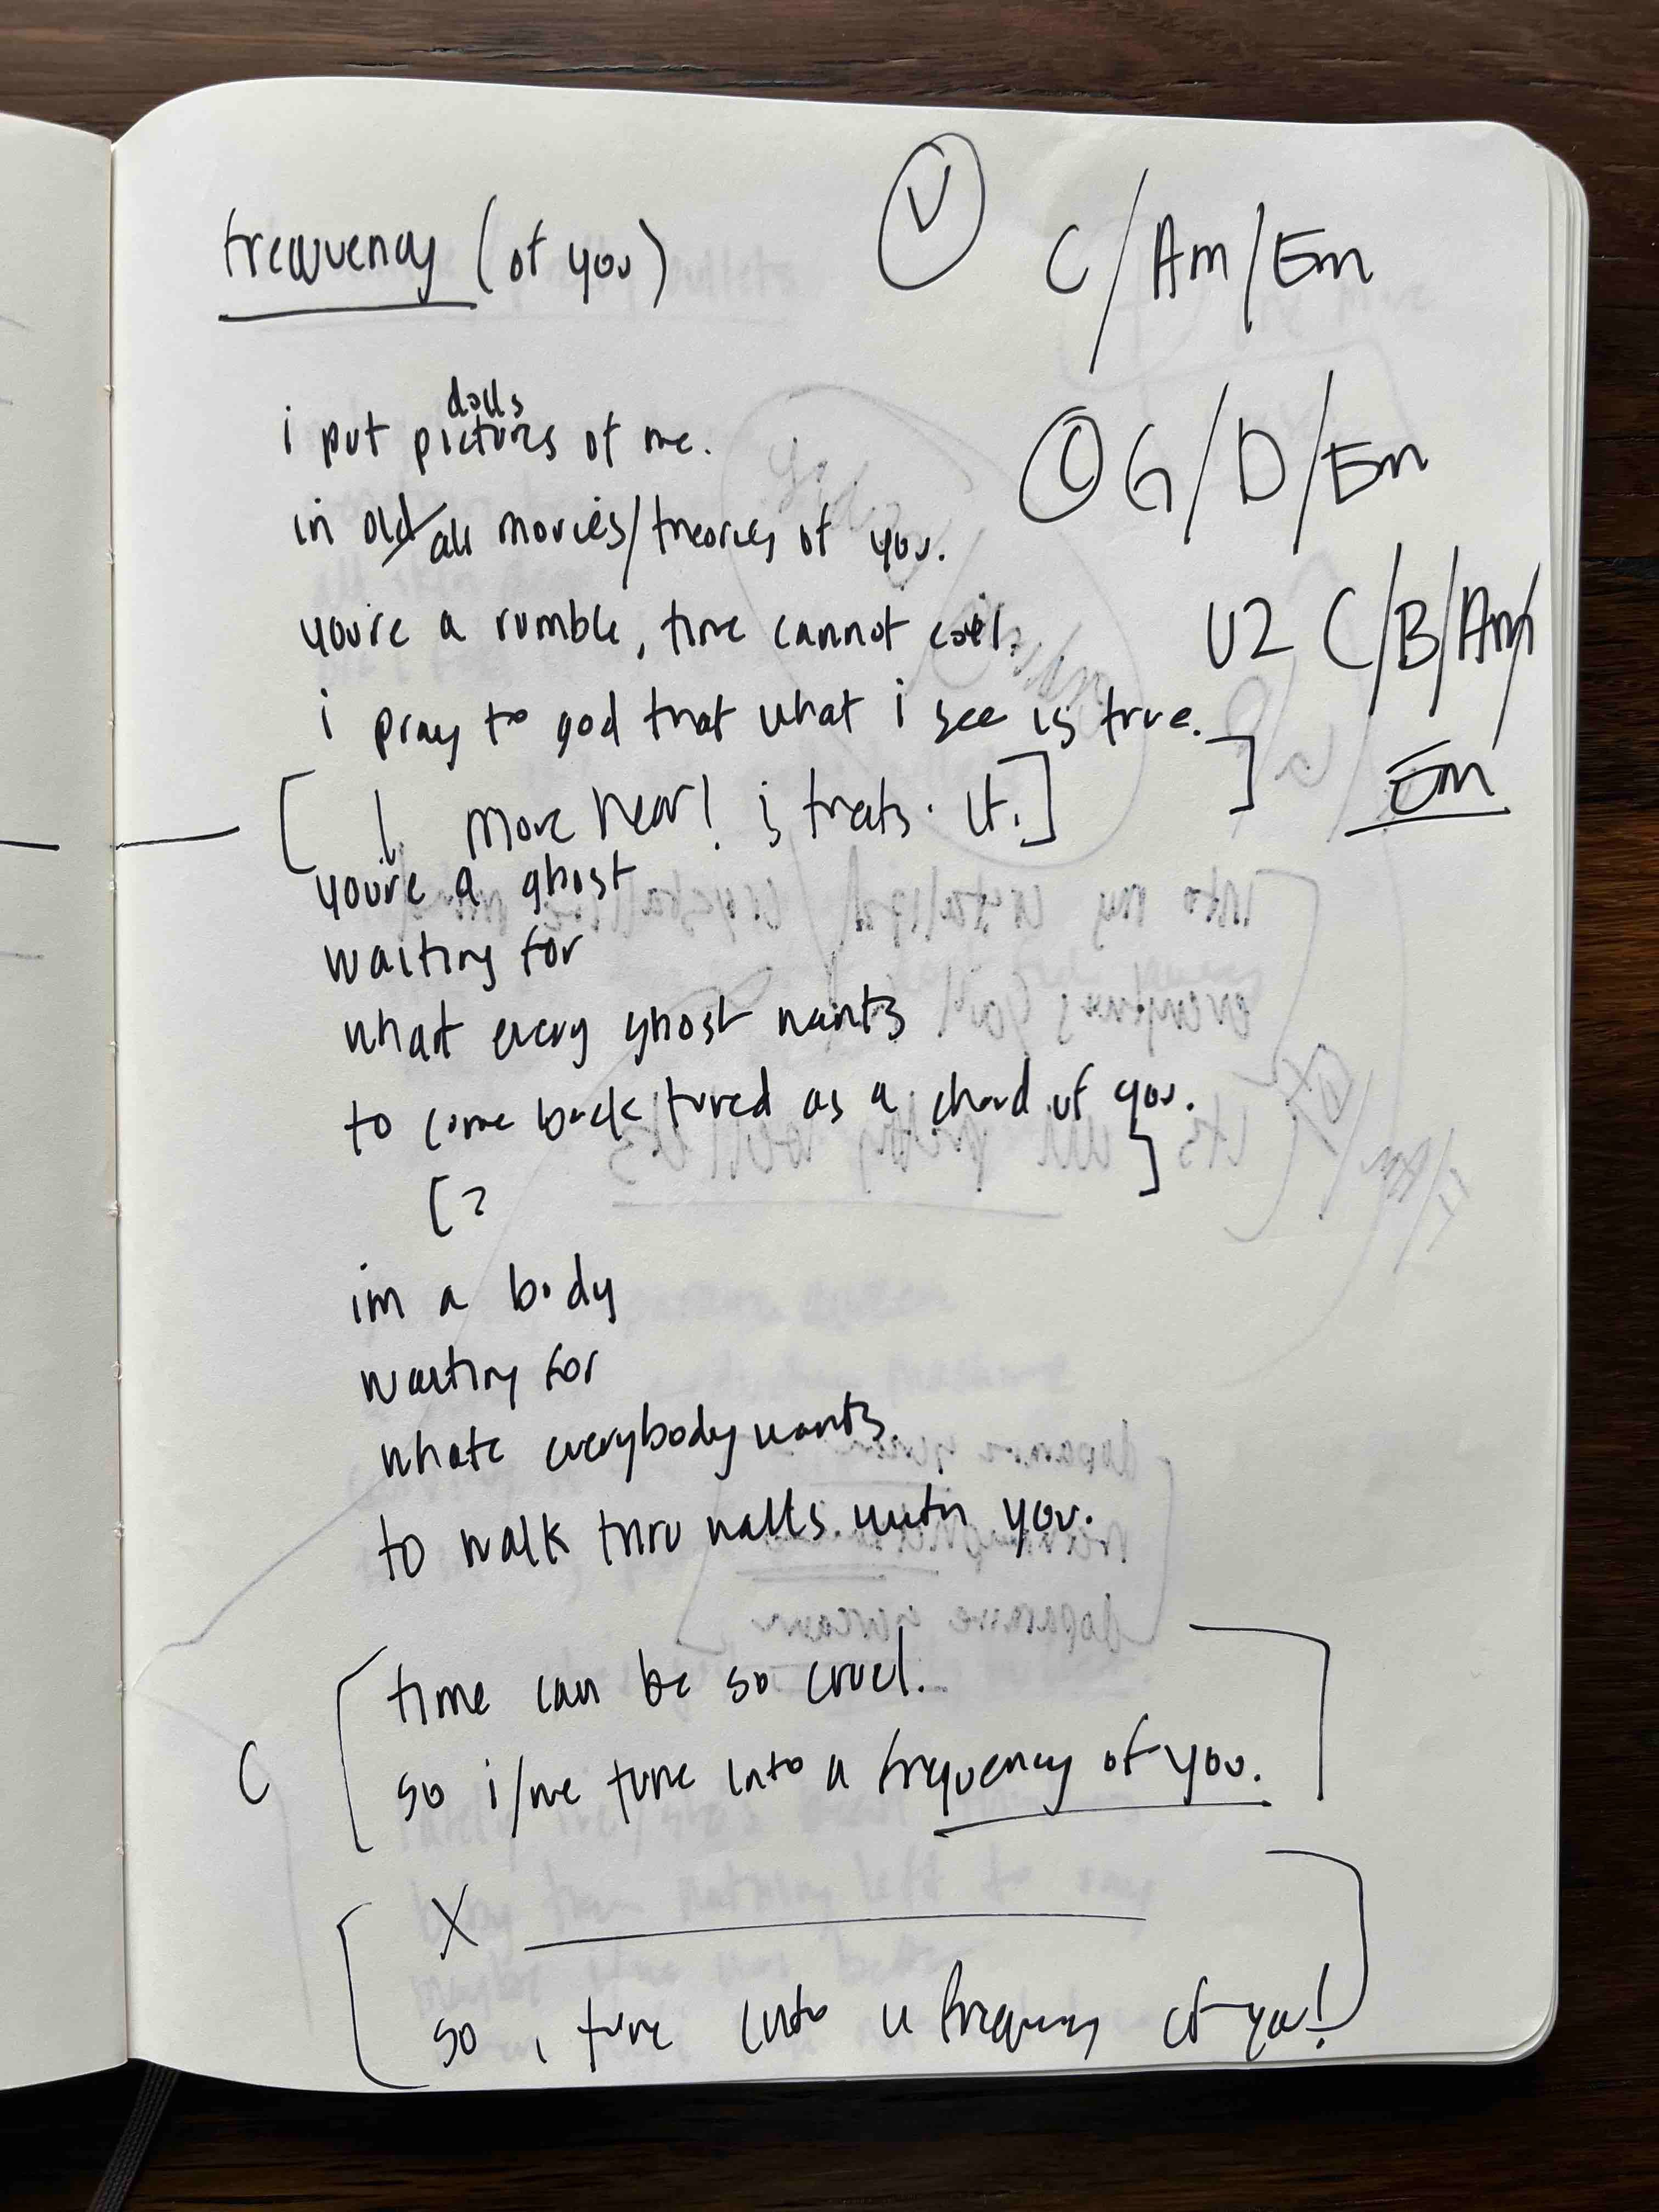 frequency (of you)
V C/Am/Em
dolls
i put pictures of me.
C G/D/Em
in old/all movies/theories of you.
you're a rumble, time cannot
V2 C/B/Am/
Em
i pray to god that what i see is true.
[ I more near! it. ] ]
you're a ghost
waiting for
what every ghost wants
to come back tuned as a chord of you.
]
[?
im a body
waiting for
whats everybody wants
to walk thru walls with you.
C [ time can be so cruel.
so i/we tune into a frequency of you. ]
[ X
so i tune into a frequency of you! ]